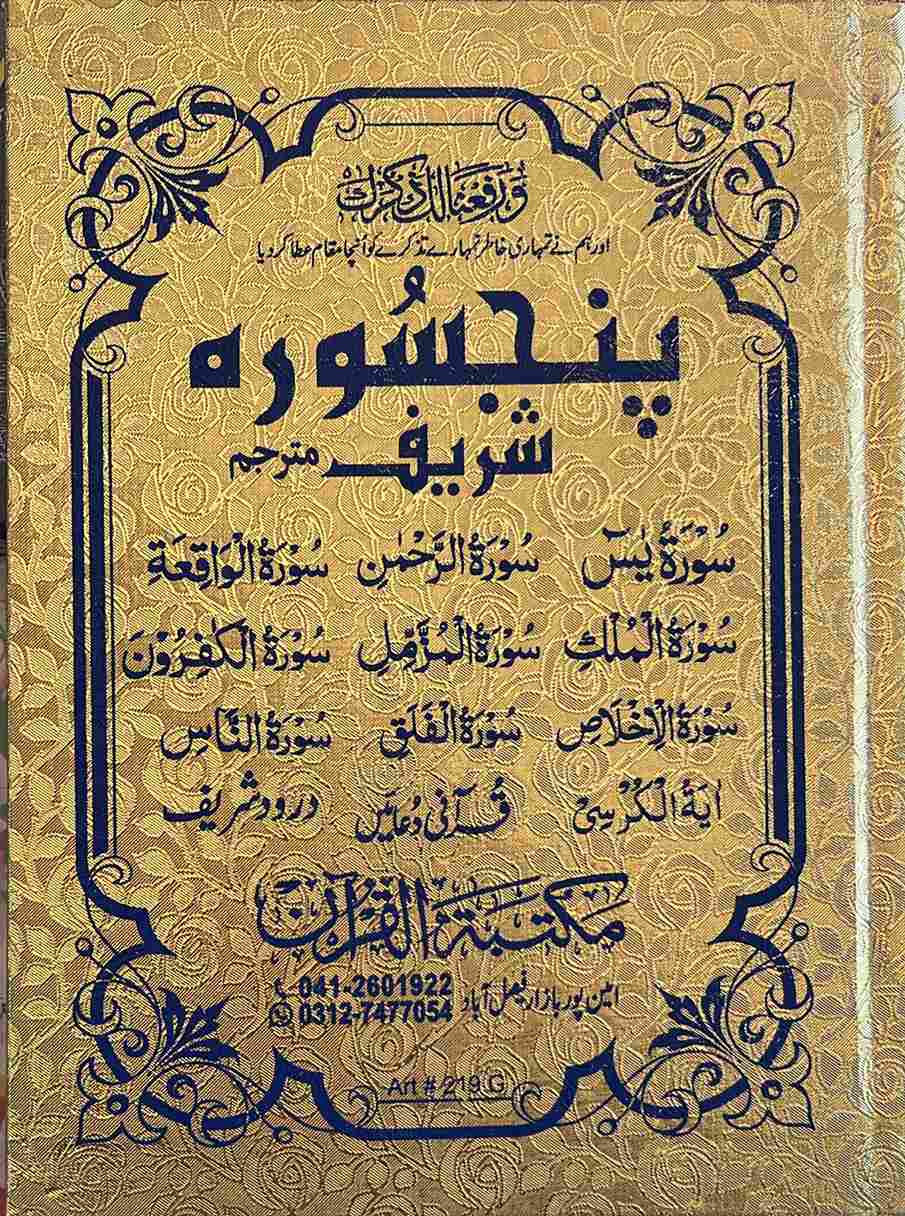 وَرَفَعْنَا لَكَ ذِكْرَكَ
اور ہم نے تمہاری خاطر تمہارے تذکرے کو اُنچا مقام عطا کر دیا
پنجسُورہ
شریف مترجم
سُوْرَةُ يٰسٓ سُوْرَةُ الرَّحْمٰنِ سُوْرَةُ الْوَاقِعَةِ
سُوْرَةُ الْمُلْكِ سُوْرَةُ الْمُزَّمِّلِ سُوْرَةُ الْكٰفِرُوْنَ
سُوْرَةُ الْاِخْلَاصِ سُوْرَةُ الْفَلَقِ سُوْرَةُ النَّاسِ
اٰيَةُ الْكُرْسِیْ قُرآنی دُعائیں درود شریف
مکتبۃ القرآن
امین پور بازار فیصل آباد 041-2601922
0312-7477054
Art # 219 G